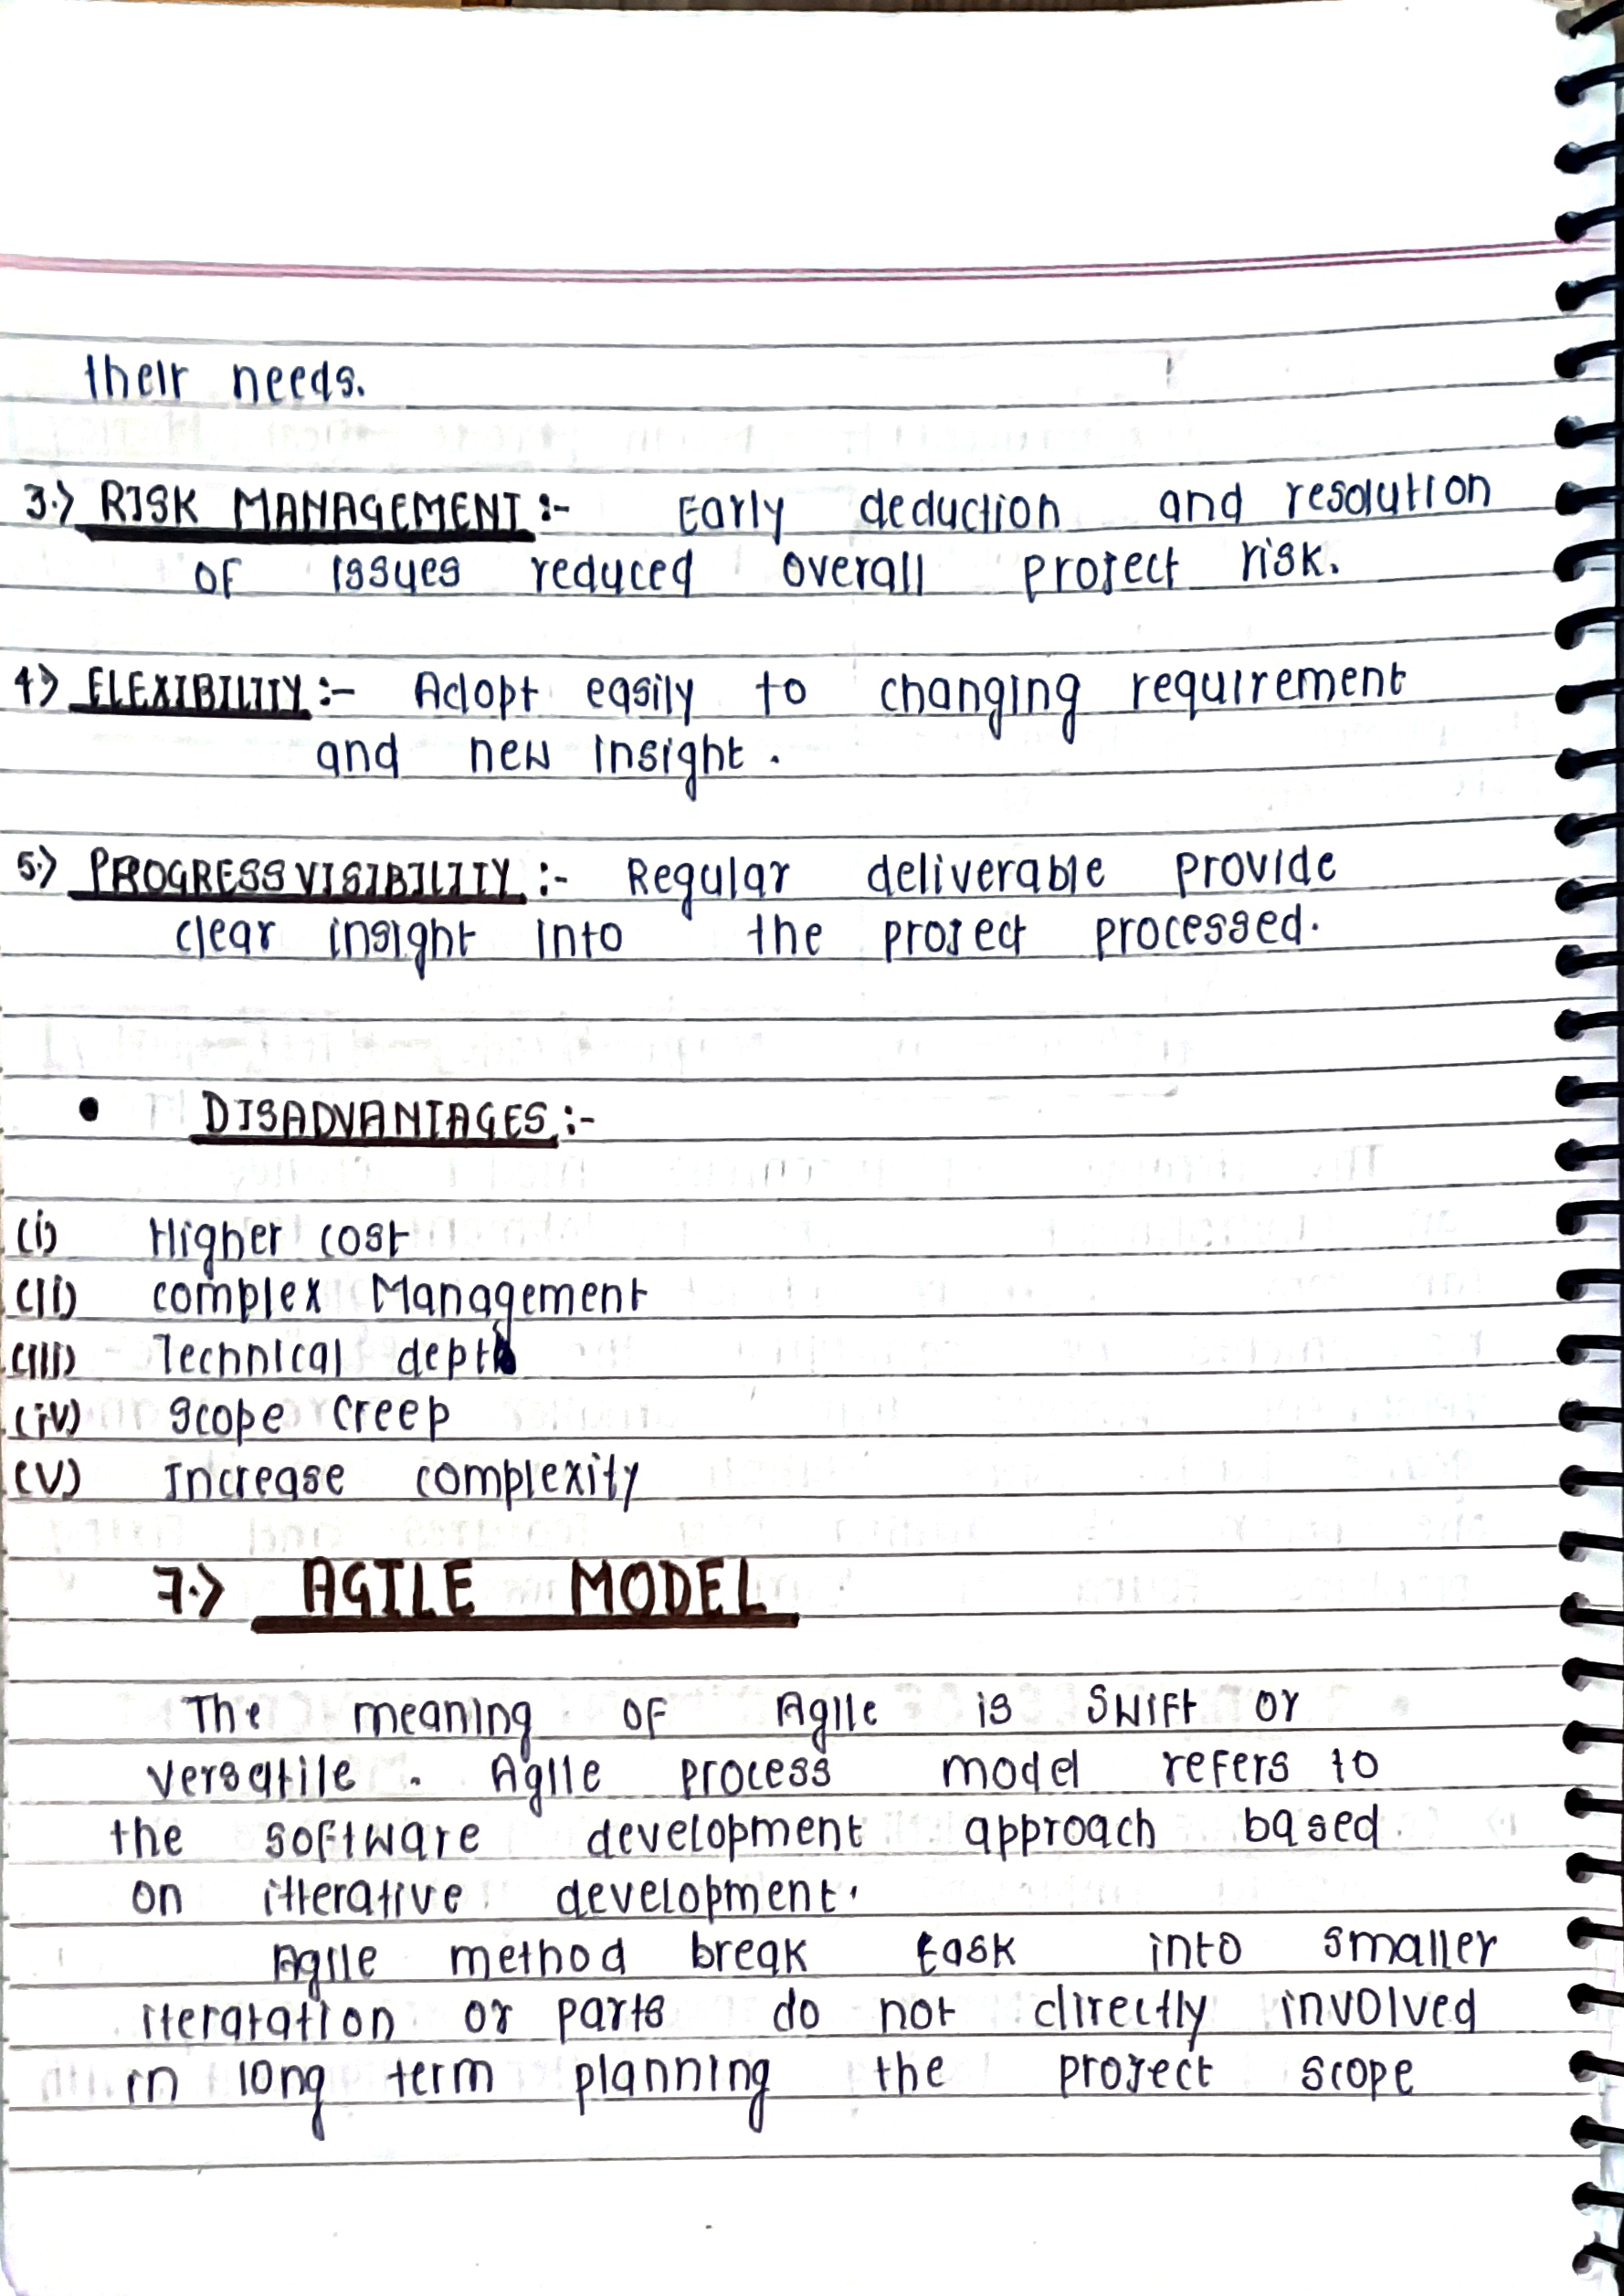 their needs.
3.) RISK MANAGEMENT :- Early deduction and resolution
of issues reduced overall project risk.
4) FLEXIBILITY :- Adopt easily to changing requirement
and new insight.
5.) PROGRESS VISIBILITY :- Regular deliverable provide
clear insight into the project processed.
• DISADVANTAGES :-
(i) Higher cost
(ii) complex Management
(iii) Technical depth
(iv) scope creep
(v) Increase complexity
7.) AGILE MODEL
The meaning of Agile is swift or
versatile. Agile process model refers to
the software development approach based
on itterative development.
Agile method break task into smaller
iteratation or parts do not directly involved
in long term planning the project scope